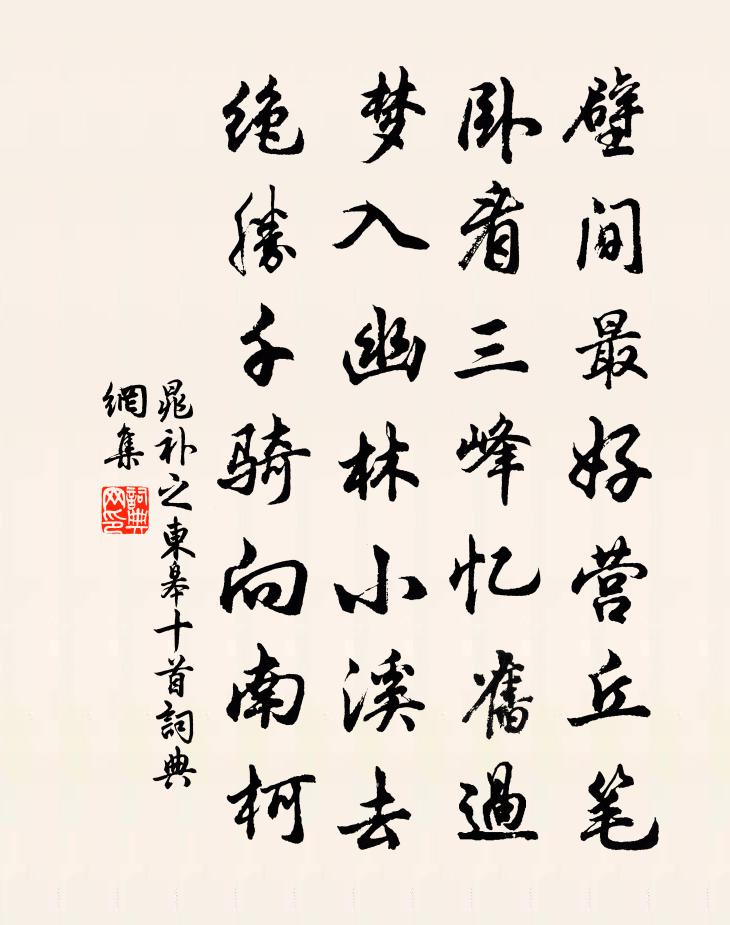 壁间最好营丘笔
卧看三峰忆旧過
梦入幽林小溪去
绝勝千骑向南柯
晁补之東皋十首詞典
網集
詞典
网印